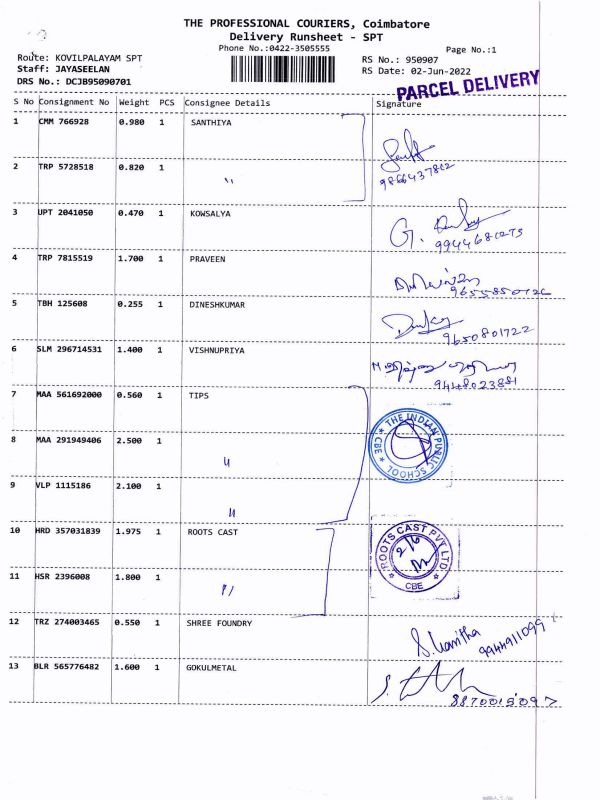 THE PROFESSIONAL COURIERS, Coimbatore
Delivery Runsheet - SPT
Phone No.:0422-3505555
Page No.:1
Route: KOVILPALAYAM SPT
RS No.: 950907
Staff: JAYASEELAN
RS Date: 02-Jun-2022
DRS No.: DCJB95090701
PARCEL DELIVERY
S No Consignment No Weight PCS Consignee Details Signature
1 CMM 766928 0.980 1 SANTHIYA
2 TRP 5728518 0.820 1 "
3 UPT 2041050 0.470 1 KOWSALYA
G.
4 TRP 7815519 1.700 1 PRAVEEN
5 TBH 125608 0.255 1 DINESHKUMAR
9650801722
6 SLM 296714531 1.400 1 VISHNUPRIYA
9448023881
7 MAA 561692000 0.560 1 TIPS
THE INDIAN PUBLIC SCHOOL * CBE *
8 MAA 291949406 2.500 1 "
9 VLP 1115186 2.100 1 "
10 HRD 357031839 1.975 1 ROOTS CAST
ROOTS CAST PVT LTD. * CBE *
2/6
11 HSR 2396008 1.800 1 "
12 TRZ 274003465 0.550 1 SHREE FOUNDRY
9944911099
13 BLR 565776482 1.600 1 GOKULMETAL